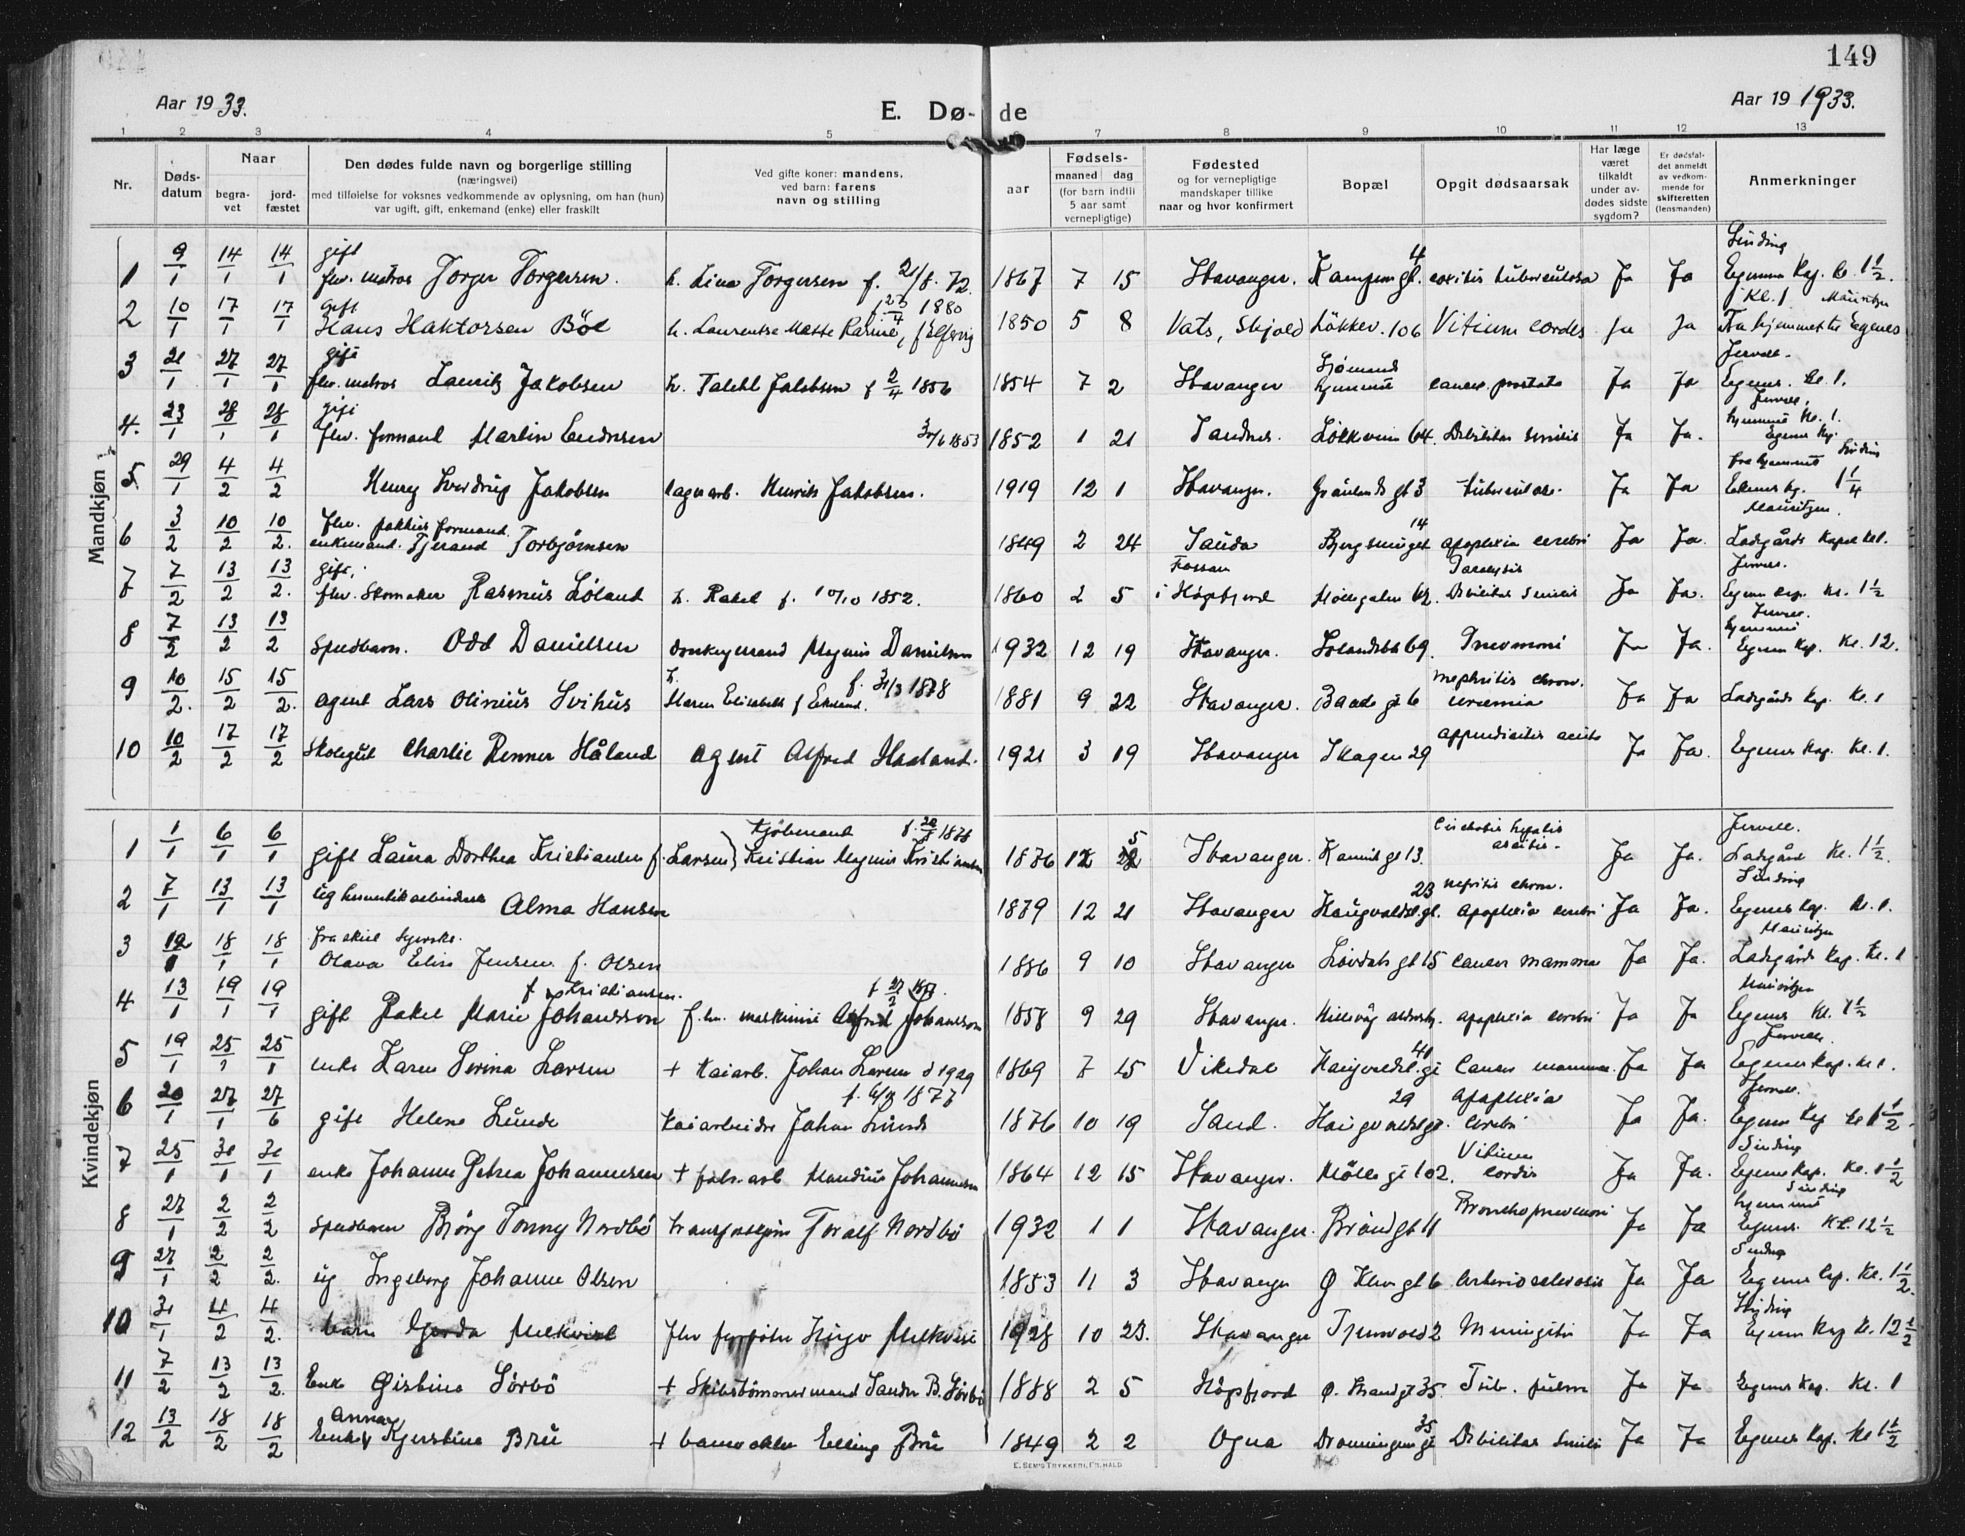 149
Aar 1933.
E. Døde
Aar 19 1933.
1 2 3 4 5 7 8 9 10 11 12 13
Nr.
Døds-datum
Naar
begra-vet
jord-fæstet
Den dødes fulde navn og borgerlige stilling
(næringsvei)
med tilføielse for voksnes vedkommende av oplysning, om han (hun)
var ugift, gift, enkemand (enke) eller fraskilt
Ved gifte koner: mandens,
ved barn: farens
navn og stilling
aar
Fødsels-
maaned dag
(for barn indtil
5 aar samt
vernepligtige)
Fødested
og for vernepligtige
mandskaper tillike
naar og hvor konfirmert
Bopæl
Opgit dødsaarsak
Har læge
været
tilkaldt
under av-
dødes sidste
sygdom?
Er dødsfal-
det anmeldt
av vedkom-
mende for
skifteretten
(lensmanden)
Anmerkninger
Mandkjøn
1 9/1 14/1 14/1 gift fhv. matros Jorger Torgersen. h. Lina Torgersen f. 2/8. 72. 1867 7 15 Stavanger. Kampengt. 4 coxitis tuberculosa Ja Ja Sinding Egenes Kap. kl. 1 1/2.
2 10/1 17/1 17/1 gift Hans Haktorsen Böe h. Laurentse Mette Karine, 1880 1850 5 8 Vats, Skjold Løkkev. 106 Vitium cordis Ja Ja Kl. 1 Mauritzen Fra hjemmet til Egenes
3 21/1 27/1 27/1 gift fhv. matros Lauritz Jakobsen h. Jakobsen f 2/4 1856 1854 7 2 Stavanger Sjømands hjemmet cancer prostata Ja Ja Jervell. Egenes. Kl. 1.
4. 23/1 28/1 28/1 gift fhv. formand Martin Endresen 3/6 1853 1852 1 21 Sandnes. Løkkevein 64. Debilitas senilis Ja Ja. Jervell, hjemmet Kl. 1. Egenes Kap.
5 29/1 4/2 4/2 Henry Sverdrup Jakobsen lagerarb. Henrik Jakobsen. 1919 12 1 Stavanger. Grønlands gt 3 tuberculose. Ja Ja fra hjemmet Sinding Egenes kp. 1 1/4
6 3/2 10/2 10/2. fhv. pakhus formand. enkemand. Tjerand Torbjørnsen 1849 2 24 Sauda Bjergsmuget 14 apoplexia cerebri Ja Ja. Mauritzen. Ladgårds Kapel kl 1.
7 7/2 13/2 13/2. gift. fhv. Skomaker Rasmus Løland h. Rakel f. 10/10 1852. 1860 2 5 Fossan i Høgsfjord Møllegaten 62. Paralysis Debilitas senilis Ja Ja. Jervell. Egenes kap. kl. 1 1/2
8 7/2 13/2 13/2 spedbarn. Odd Danielsen donkeymand Magnus Danielsen 1932 12 19 Stavanger. 69. Pneumoni Ja Ja. Jervell. hjemmet Egenes Kap. Kl. 12.
9 10/2. 15/2 15/2. agent Lars Olinius Svihus h. Maren Elisabeth f f. 31/3 1878 1881 9 22 Stavanger. Baade gt 6 nephritis chron. uræmia Ja Ja Ladgårds Kap. Kl. 1
10 10/2 17/2 17/2 Skolegut Charlie Renner Håland agent Alfred Haaland. 1921 3 19 Stavanger Skagen 29 appendicitis acuta Ja Ja. Egenes Kap. Kl. 1.
Kvindekjøn
1 1/1 6/1 6/1 gift Laura Dorthea Kristiansen f. Larsen Kjøbmand Kristian Magnus Kristiansen 1876 12 5 Stavanger. gt 13. Cirrhosis hepatis ascites. Ja Ja. Jervell. Ladegård Kl. 1 1/2.
2 7/1 13/1 13/1 ug hermetikarbeiderske Alma Hansen 1879 12 21 Stavanger Haugvaldst. gt. 23 nefritis chron. apoplexia cerebri Ja Ja. Sinding Egenes kap. kl. 1.
3 12/1 18/1 18/1 fraskilt Syerske. Olava Elise Jensen f. Olsen 1886 9 10 Stavanger Løvdals gt 15 cancer mamma Ja Ja. Mauritzen Ladegårds kap. kl. 1
4 13/1 19/1 19/1 gift Rakel Marie Johansson f Kristiansen. f. hv. maskinist Alfred Johansson 1858 9 29 Stavanger. Hillevåg aldersh. apoplexia cerebri Ja Ja Mauritzen Egenes kl. 1 1/2
5 19/1 25/1 25/1 enke Karen Serina Larsen + Kaiarb. Johan Larsen d 1929 1869 7 15 Vikedal Haugvaldst. gt 41 Cancer mammae Ja Ja Jervell. Egenes kap. kl 1.
6 20/1 27/1 27/6 gift Helene Lunde Kaiarbeider Johan Lunde 1877 1876 10 19 Sand. Haugvaldst gt. 29 apoplexia cerebri Ja Ja. Jervell. Egenes Kap kl 1 1/2.
7 25/1 31/1 31/1 enke Johanne Petrea Johannesen + fabr. arb Johannesen 1864 12 15 Stavanger. Mølle gt 102. Vitium cordis Ja Ja. Sinding Egenes Kap. kl. 1 1/2
8 27/1 2/2 2/2 spedbarn Bjørg Tonny Nordbö Toralf Nordbö 1932 1 1 Stavanger. Brøndgt 11 Bronchopneumoni Ja Ja Sinding hjemmet Egenes Kl. 12 1/2
9 27/1 2/2 2/2. ug Ingeborg Johanne Olsen 1853 11 3 Stavanger Ø Klevgt 6 Arteriosclerosis Ja Ja Sinding Egenes kap. kl. 1 1/2.
10 31/1 4/2 4/2. barn Gerda Melkvist fhv fyrbøter Hugo Melkvist 1928 10 23. Stavanger Tjensvold 2 Meningitis Ja Ja Sinding Egenes Kap kl. 12 1/2
11 7/2 13/2 13/2. Enke Gistina Sørbö + Skibstømmermand Sander B. Sørbö 1888 2 5 Høgsfjord Ø. Strandgt 35 Tub. pulm Ja Ja Egenes Kap. Kl. 1
12 13/2 18/2 18/2 Enke Anna Kjerstine Bru + Elling Bru 1849 2 2 Ogna Dronningensgt 35 Debilitas senilis Ja Ja Egenes Kap. kl 1 1/2
E. SEM'S TRYKKERI, FR.HALD